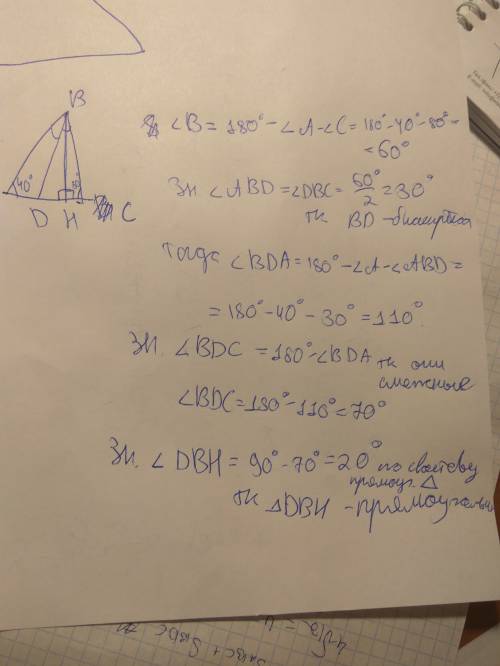 ∠B = 180° - ∠A - ∠C = 180° - 40° - 80° =
= 60°
Зн ∠ABD = ∠DBC = 60°/2 = 30°
тк BD - биссектриса
Тогда ∠BDA = 180° - ∠A - ∠ABD =
= 180° - 40° - 30° = 110°.
Зн. ∠BDC = 180° - ∠BDA тк они
смежные
∠BDC = 180° - 110° = 70°
Зн. ∠DBH = 90° - 70° = 20° по свойству
прямоуг. △
тк △DBH - прямоугольн
B
40°
80°
D H C